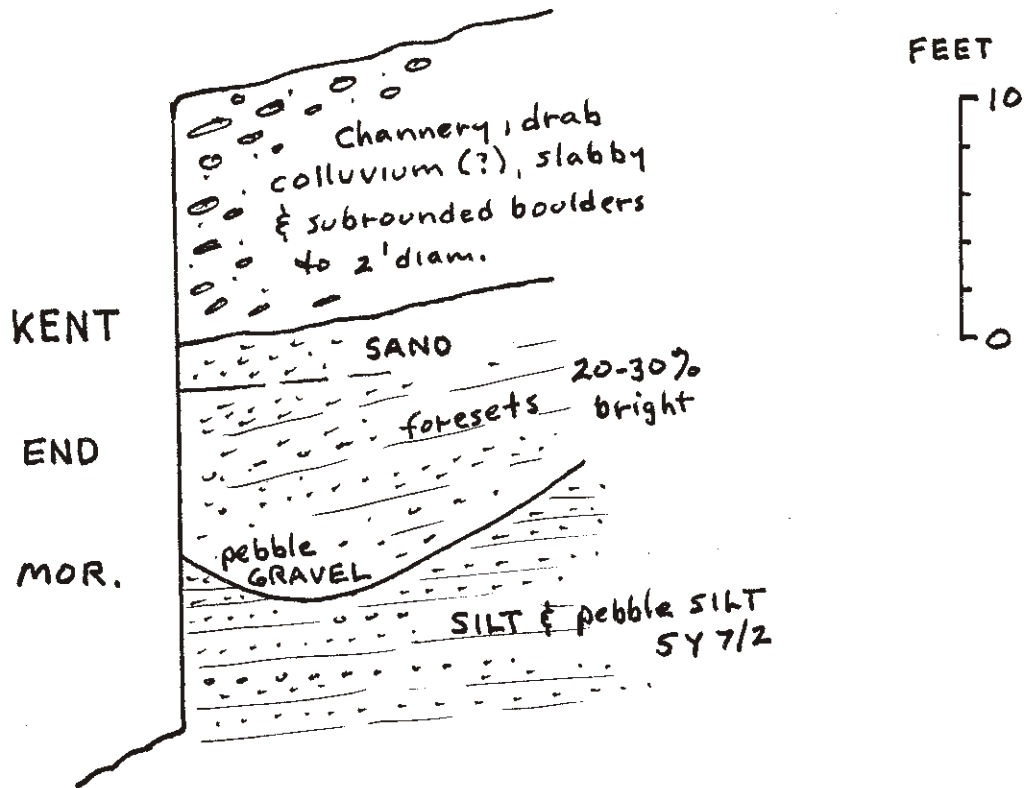 FEET
10
0
Channery, drab
colluvium (?), slabby
& subrounded boulders
to 2' diam.
KENT
END
MOR.
SAND
20-30%
bright
foresets
pebble
GRAVEL
SILT & pebble SILT
5Y 7/2